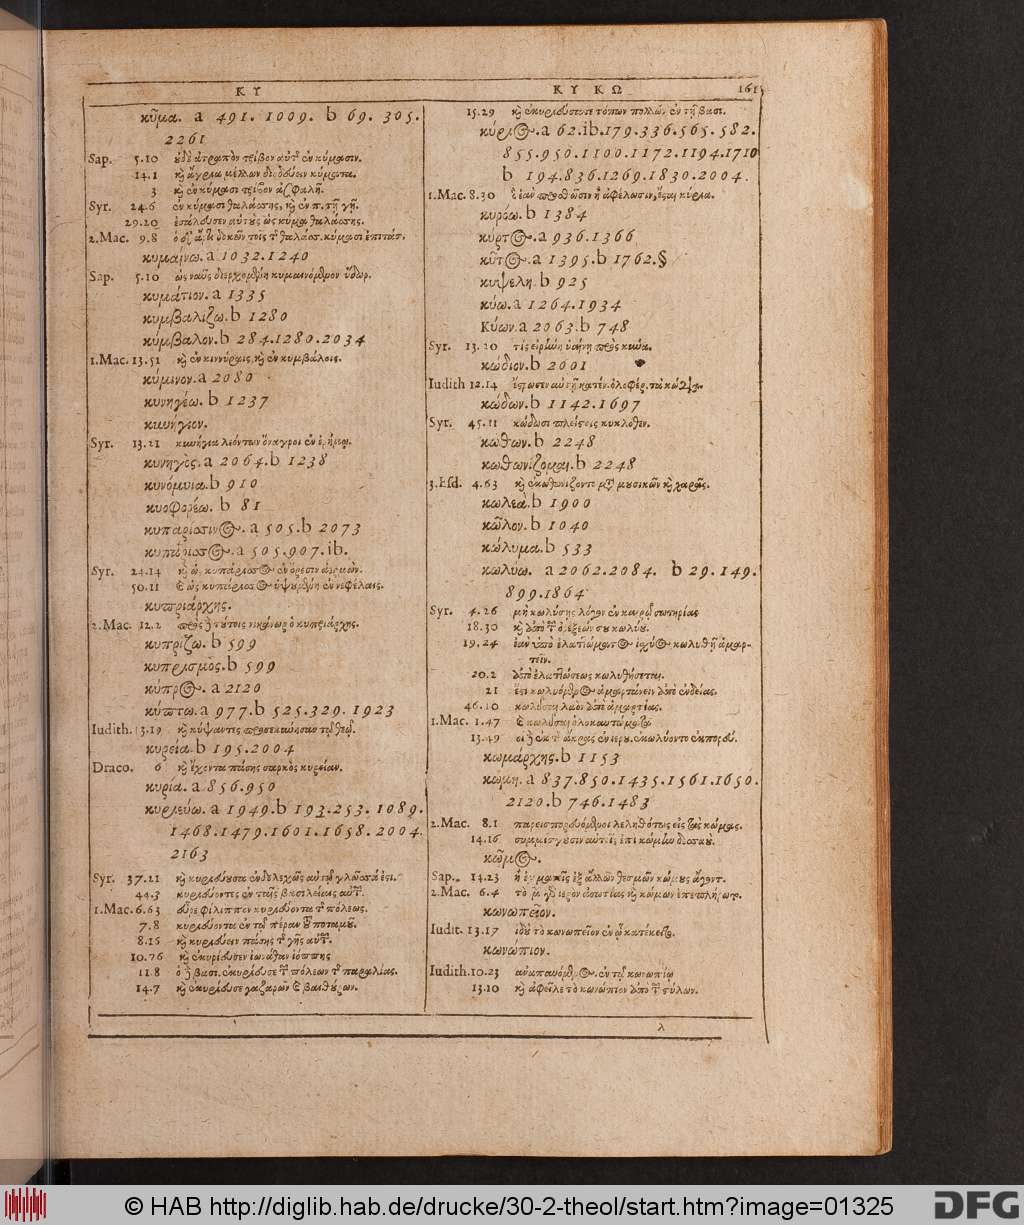 Κ Υ
Κ Υ Κ Ω 161
κῦμα. a 491. 1009. b 69. 305.
2261
Sap. 5.10 ἐν κύμασιν.
14.1 κύματα.
3 καὶ ἐν κύμασι τρίβον
Syr. 24.6 ἐν κύμασι θαλάσσης, καὶ ἐν π. τῇ γῇ.
29.20 ὡς κῦμα θαλάσσης.
2.Mac. 9.8
κυμαίνω. a 1032. 1240
Sap. 5.10 ὡς ναῦς διερχομένη κυμαινόμενον ὕδωρ.
κυμάτιον. a 1335
κυμβαλίζω. b 1280
κύμβαλον. b 284. 1280. 2034
1.Mac. 13.51 καὶ ἐν κιννύραις, καὶ ἐν κυμβάλοις.
κύμινον. a 2080
κυνηγέω. b 1237
κυνήγιον.
Syr. 13.21 κυνήγια λεόντων ὄναγροι ἐν ἐρήμῳ.
κυνηγὸς. a 2064. b 1238
κυνόμυια. b 910
κυοφορέω. b 81
κυπαρίσσινος. a 505. b 2073
κυπάρισσος. a 505. 907. ib.
Syr. 24.14 καὶ ὡς κυπάρισσος ἐν ὄρεσιν ἀερμών.
50.11 καὶ ὡς κυπάρισσος ὑψουμένη ἐν νεφέλαις.
κυπριάρχης.
2.Mac. 12.2 πρὸς δὲ τούτοις νικάνωρ ὁ κυπριάρχης.
κυπρίζω. b 599
κυπρισμὸς. b 599
κύπρος. a 2120
κύπτω. a 977. b 525. 329. 1923
Iudith. 13.19 καὶ κύψαντες προσεκύνησαν τῷ θεῷ.
κυρεία. b 195. 2004
Draco. 6 καὶ ἔχοντα πάσης σαρκὸς κυρείαν.
κυρία. a 856. 950
κυριεύω. a 1949. b 193. 253. 1089.
1468. 1479. 1601. 1658. 2004.
2163
Syr. 37.21 καὶ κυριεύουσα ἐνδελεχῶς αὐτῶν γλῶσσά ἐστι.
44.3 κυριεύοντες ἐν ταῖς βασιλείαις αὐτῶν.
1.Mac. 6.63 εὗρε φίλιππον κυριεύοντα τῆς πόλεως.
7.8 κυριεύοντα ἐν τῷ πέραν τοῦ ποταμοῦ.
8.16 καὶ κυριεύειν πάσης τῆς γῆς αὐτῶν.
10.76 καὶ ἐκυρίευσεν ἰωνάθαν ἰόππης
11.8 ὁ δὲ βασι. ἐκυρίευσε τῶν πόλεων τῆς παραλίας.
14.7 καὶ ἐκυρίευσε γαζαρῶν καὶ βαιθσύρων.
15.29 καὶ ἐκυριεύσατε τόπων πολλῶν ἐν τῇ βασι.
κύριος. a 62. ib. 179. 336. 565. 582.
855. 950. 1100. 1172. 1194. 1710
b 194. 836. 1269. 1830. 2004.
1.Mac. 8.30 ὃ ἐὰν προσθῶσιν ἢ ἀφέλωσιν, ἔσται κύρια.
κυρόω. b 1384
κυρτός. a 936. 1366
κύτος. a 1395. b 1762. §
κυψέλη. b 925
κύω. a 1264. 1934
Κύων. a 2063. b 748
Syr. 13.20 τίς εἰρήνη ὑαίνῃ πρὸς κύνα.
κώδιον. b 2001
Iudith 12.14 ἔστρωσεν
κώδων. b 1142. 1697
Syr. 45.11 κώδωσι πλείστοις κυκλόθεν.
κώθων. b 2248
κωθωνίζομαι. b 2248
3.Esd. 4.63 καὶ ἐκωθωνίζοντο μετὰ μουσικῶν καὶ χαρᾶς.
κωλεὰ. b 1900
κῶλον. b 1040
κώλυμα. b 533
κωλύω. a 2062. 2084. b 29. 149.
899. 1864
Syr. 4.26 μὴ κωλύσῃς λόγον ἐν καιρῷ σωτηρίας
18.30 καὶ ἀπὸ τῶν ὀρέξεών σου κωλύου.
19.24 ἐὰν ὑπὸ ἐλαττώματος ἰσχύος κωλυθῇ ἁμαρ-
τεῖν.
20.2 ἀπὸ ἐλαττώσεως κωλυθήσεται.
21 ἔστι κωλυόμενος ἁμαρτάνειν ἀπὸ ἐνδείας.
46.10 κωλῦσαι λαὸν ἀπὸ ἁμαρτίας.
1.Mac. 1.47 καὶ κωλῦσαι ὁλοκαυτώματα
13.49 οἱ δὲ ἐκ τῆς ἄκρας ἐν ἱερου. ἐκωλύοντο ἐκπορεύ.
κωμάρχης. b 1153
κώμη. a 837. 850. 1435. 1561. 1650.
2120. b 746. 1483
2.Mac. 8.1 παρεισπορευόμενοι λεληθότως εἰς τὰς κώμας.
14.16 συμμίσγουσιν αὐτοῖς ἐπὶ κώμην
κῶμος.
Sap. 14.23 ἢ ἐμμανεῖς ἐξ ἄλλων θεσμῶν κώμους ἄγοντ.
2.Mac. 6.4 τὸ μὲν γὰρ ἱερὸν ἀσωτίας καὶ κώμων ἐπεπλήρωτο.
κωνωπεῖον.
Iudit. 13.17 ἰδοὺ τὸ κωνωπεῖον ἐν ᾧ κατέκειτο.
κωνώπιον.
Iudith. 10.23 ἀναπαυόμενος ἐν τῷ κωνωπίῳ
13.10 καὶ ἀφεῖλε τὸ κωνώπιον ἀπὸ τῶν στύλων.
λ
© HAB http://diglib.hab.de/drucke/30-2-theol/start.htm?image=01325
DFG